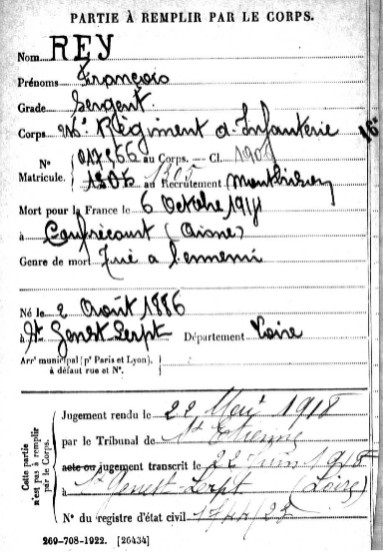 PARTIE À REMPLIR PAR LE CORPS.
Nom REY
Prénoms François
Grade Sergent
Corps 216e Régiment d'Infanterie 16e
N° 017566 au Corps. — Cl. 1906
Matricule. 1305 au Recrutement Montbrison
Mort pour la France le 6 Octobre 1914
à Confrécourt (Aisne)
Genre de mort Tué a l'ennemi
Né le 2 Août 1886
à St Genest Lerpt Département Loire
Arrt municipal (pr Paris et Lyon).
à défaut rue et N°.
Cette partie n'est pas à remplir par le Corps.
Jugement rendu le 22 Mai 1918
par le Tribunal de St Etienne
acte ou jugement transcrit le 22 Juin 1918
à St Genest-Lerpt (Loire)
N° du registre d'état civil
269-708-1922. [26434]